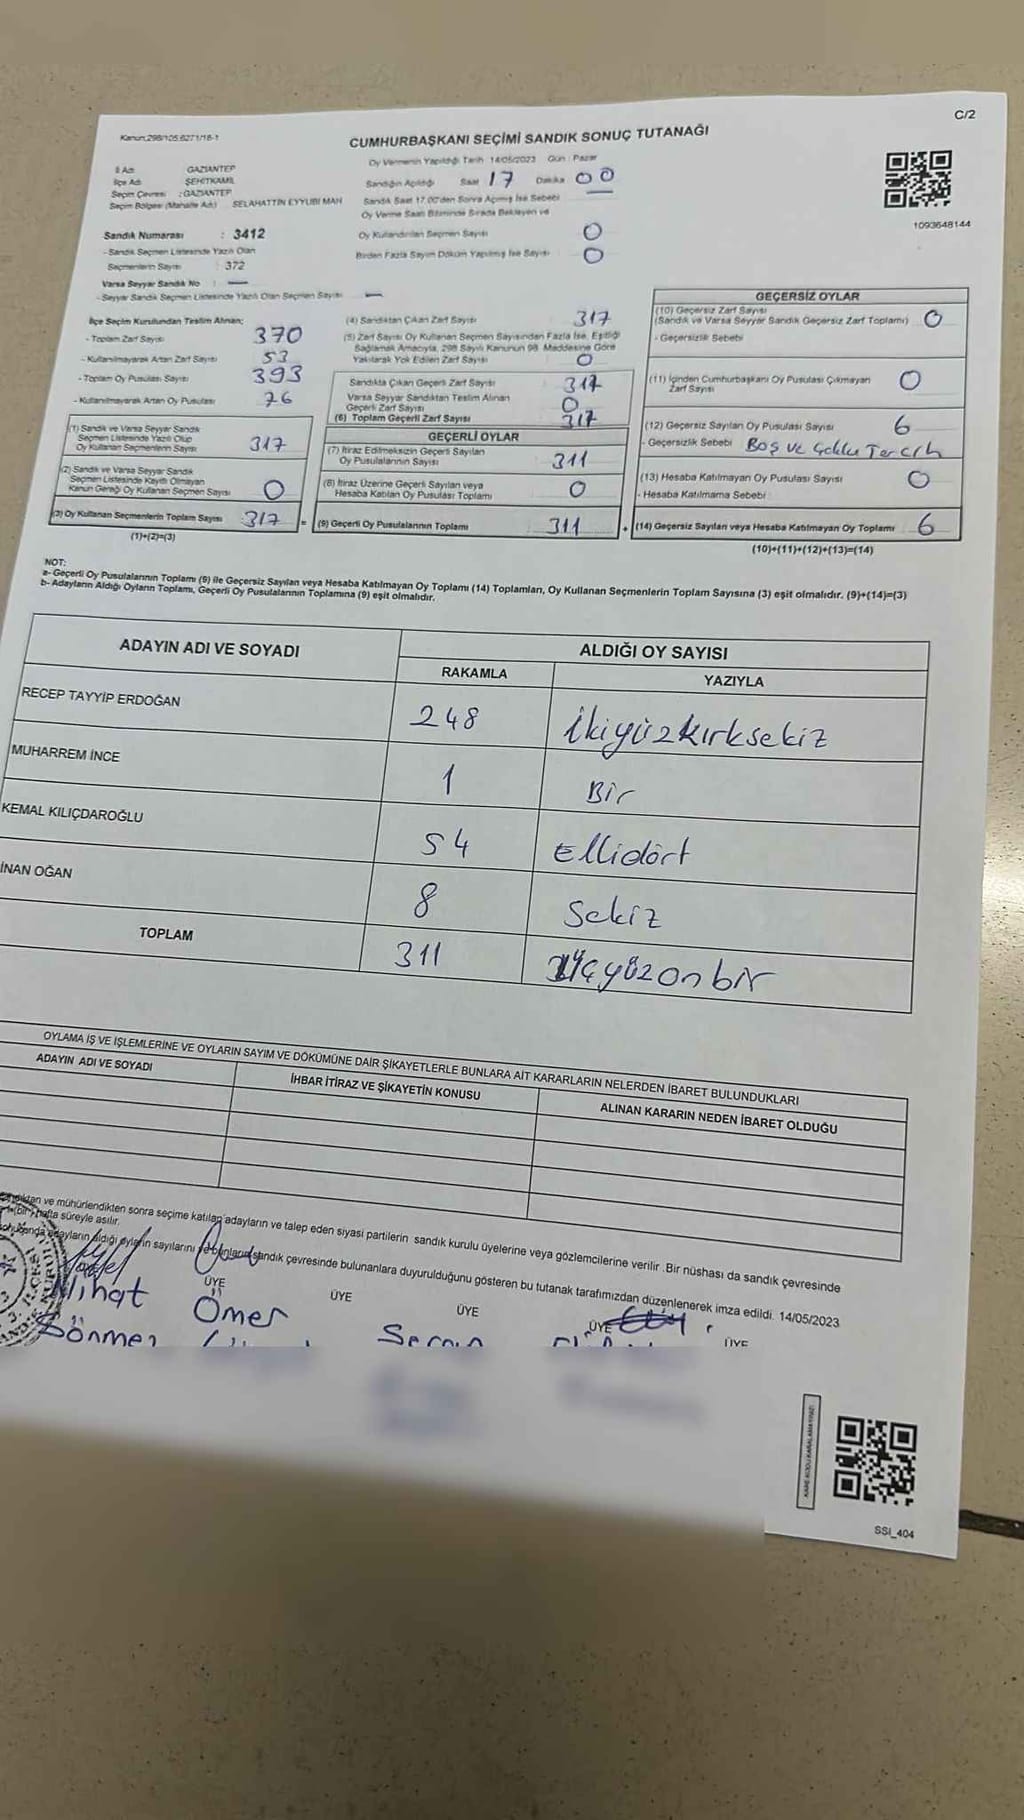 C/2
Kanun:298/105,6271/18-1
CUMHURBAŞKANI SEÇİMİ SANDIK SONUÇ TUTANAĞI
Oy Vermenin Yapıldığı Tarih 14/05/2023 Gün : Pazar
İl Adı GAZİANTEP
İlçe Adı ŞEHİTKAMİL
Seçim Çevresi : GAZİANTEP
Seçim Bölgesi (Mahalle Adı) SELAHATTİN EYYUBİ MAH
Sandığın Açıldığı Saat 17 Dakika 00
Sandık Saat 17.00'den Sonra Açılmış İse Sebebi
Oy Verme Saati Bitiminde Sırada Bekleyen ve
Oy Kullandırılan Seçmen Sayısı 0
Birden Fazla Sayım Döküm Yapılmış İse Sayısı 0
1093648144
Sandık Numarası : 3412
- Sandık Seçmen Listesinde Yazılı Olan
Seçmenlerin Sayısı : 372
Varsa Seyyar Sandık No : —
- Seyyar Sandık Seçmen Listesinde Yazılı Olan Seçmen Sayısı —
İlçe Seçim Kurulundan Teslim Alınan;
- Toplam Zarf Sayısı 370
- Kullanılmayarak Artan Zarf Sayısı 53
- Toplam Oy Pusulası Sayısı 393
- Kullanılmayarak Artan Oy Pusulası 76
(1) Sandık ve Varsa Seyyar Sandık
Seçmen Listesinde Yazılı Olup
Oy Kullanan Seçmenlerin Sayısı 317
(2) Sandık ve Varsa Seyyar Sandık
Seçmen Listesinde Kayıtlı Olmayan
Kanun Gereği Oy Kullanan Seçmen Sayısı 0
(3) Oy Kullanan Seçmenlerin Toplam Sayısı 317 =
(1)+(2)=(3)
(4) Sandıktan Çıkan Zarf Sayısı 317
(5) Zarf Sayısı Oy Kullanan Seçmen Sayısından Fazla İse, Eşitliği
Sağlamak Amacıyla, 298 Sayılı Kanunun 98. Maddesine Göre
Yakılarak Yok Edilen Zarf Sayısı 0
Sandıkta Çıkan Geçerli Zarf Sayısı 317
Varsa Seyyar Sandıktan Teslim Alınan
Geçerli Zarf Sayısı 0
(6) Toplam Geçerli Zarf Sayısı 317
GEÇERLİ OYLAR
(7) İtiraz Edilmeksizin Geçerli Sayılan
Oy Pusulalarının Sayısı 311
(8) İtiraz Üzerine Geçerli Sayılan veya
Hesaba Katılan Oy Pusulası Toplamı 0
(9) Geçerli Oy Pusulalarının Toplamı 311 +
GEÇERSİZ OYLAR
(10) Geçersiz Zarf Sayısı
(Sandık ve Varsa Seyyar Sandık Geçersiz Zarf Toplamı) 0
- Geçersizlik Sebebi
(11) İçinden Cumhurbaşkanı Oy Pusulası Çıkmayan
Zarf Sayısı 0
(12) Geçersiz Sayılan Oy Pusulası Sayısı 6
- Geçersizlik Sebebi Boş ve Çoklu Tercih
(13) Hesaba Katılmayan Oy Pusulası Sayısı 0
- Hesaba Katılmama Sebebi
(14) Geçersiz Sayılan veya Hesaba Katılmayan Oy Toplamı 6
(10)+(11)+(12)+(13)=(14)
NOT:
a- Geçerli Oy Pusulalarının Toplamı (9) ile Geçersiz Sayılan veya Hesaba Katılmayan Oy Toplamı (14) Toplamları, Oy Kullanan Seçmenlerin Toplam Sayısına (3) eşit olmalıdır. (9)+(14)=(3)
b- Adayların Aldığı Oyların Toplamı, Geçerli Oy Pusulalarının Toplamına (9) eşit olmalıdır.
ADAYIN ADI VE SOYADI
ALDIĞI OY SAYISI
RAKAMLA YAZIYLA
RECEP TAYYİP ERDOĞAN 248 ikiyüzkırksekiz
MUHARREM İNCE 1 Bir
KEMAL KILIÇDAROĞLU 54 Ellidört
İNAN OĞAN 8 Sekiz
TOPLAM 311 Üçyüzonbir
OYLAMA İŞ VE İŞLEMLERİNE VE OYLARIN SAYIM VE DÖKÜMÜNE DAİR ŞİKAYETLERLE BUNLARA AİT KARARLARIN NELERDEN İBARET BULUNDUKLARI
ADAYIN ADI VE SOYADI İHBAR İTİRAZ VE ŞİKAYETİN KONUSU ALINAN KARARIN NEDEN İBARET OLDUĞU
ve mühürlendikten sonra seçime katılan adayların ve talep eden siyasi partilerin sandık kurulu üyelerine veya gözlemcilerine verilir .Bir nüshası da sandık çevresinde
hafta süreyle asılır.
adayların aldığı oyların sayılarını ve bunların sandık çevresinde bulunanlara duyurulduğunu gösteren bu tutanak tarafımızdan düzenlenerek imza edildi. 14/05/2023
ÜYE ÜYE ÜYE ÜYE ÜYE
Nihat Ömer
Sönmez
SSİ_404